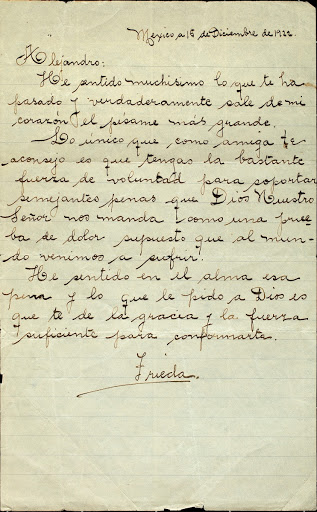 Mexico a 15 de Diciembre de 1922.
Alejandro:
He sentido muchísimo lo que te ha
pasado y verdaderamente sale de mi
corazón el pésame más grande.
Lo único que como amiga te
aconsejo es que tengas la bastante
fuerza de voluntad para soportar
semejantes penas que Dios Nuestro
Señor nos manda como una prue
ba de dolor supuesto que al mun-
do venimos a sufrir.
He sentido en el alma esa
pena y lo que le pido a Dios es
que te de la gracia y la fuerza
suficiente para conformarte.
Frieda.